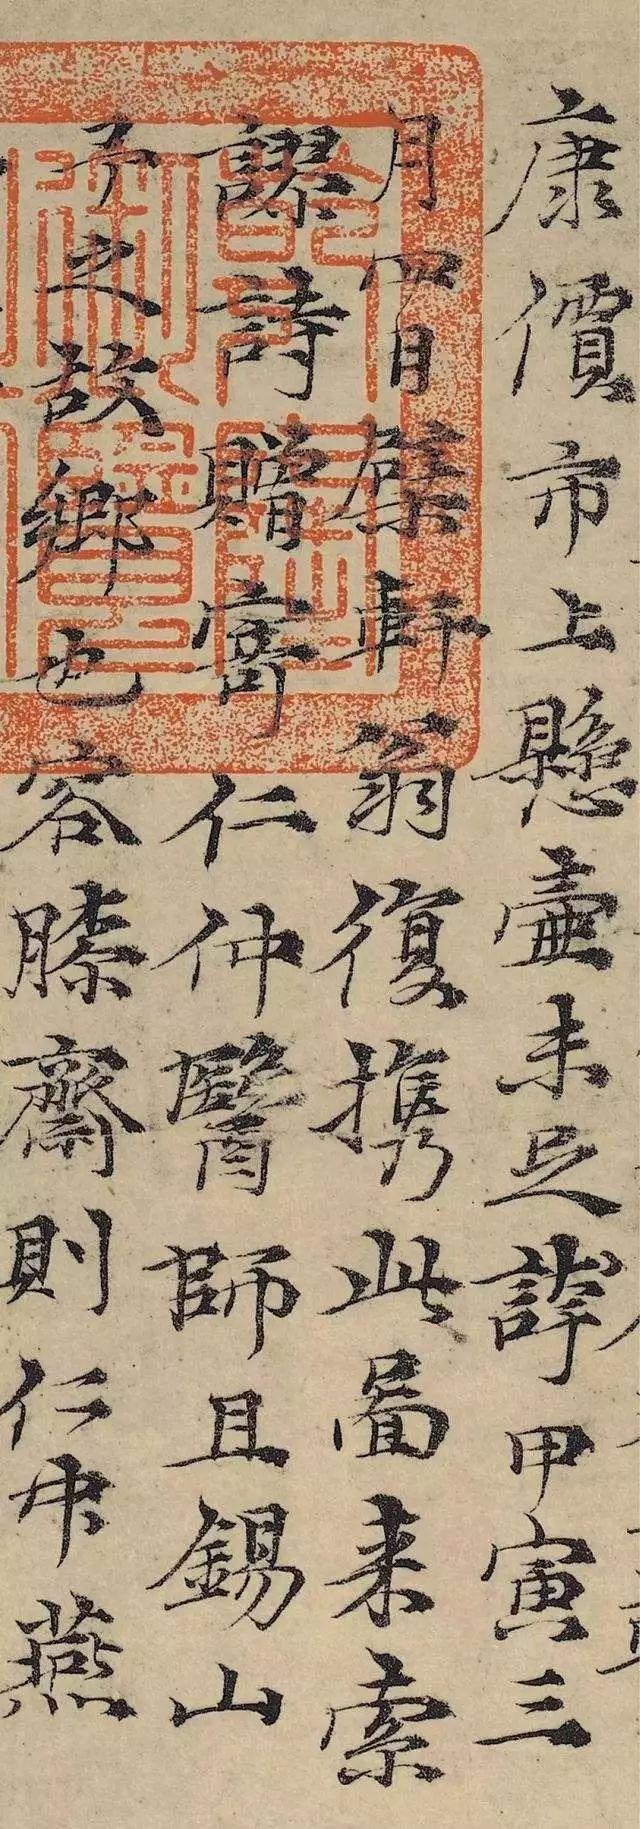 康價市上懸壺未足誇甲寅三
月四日檗軒翁復携此圖来索
謬詩贈寄仁仲醫師且錫山
予之故鄉也容膝齋則仁仲燕